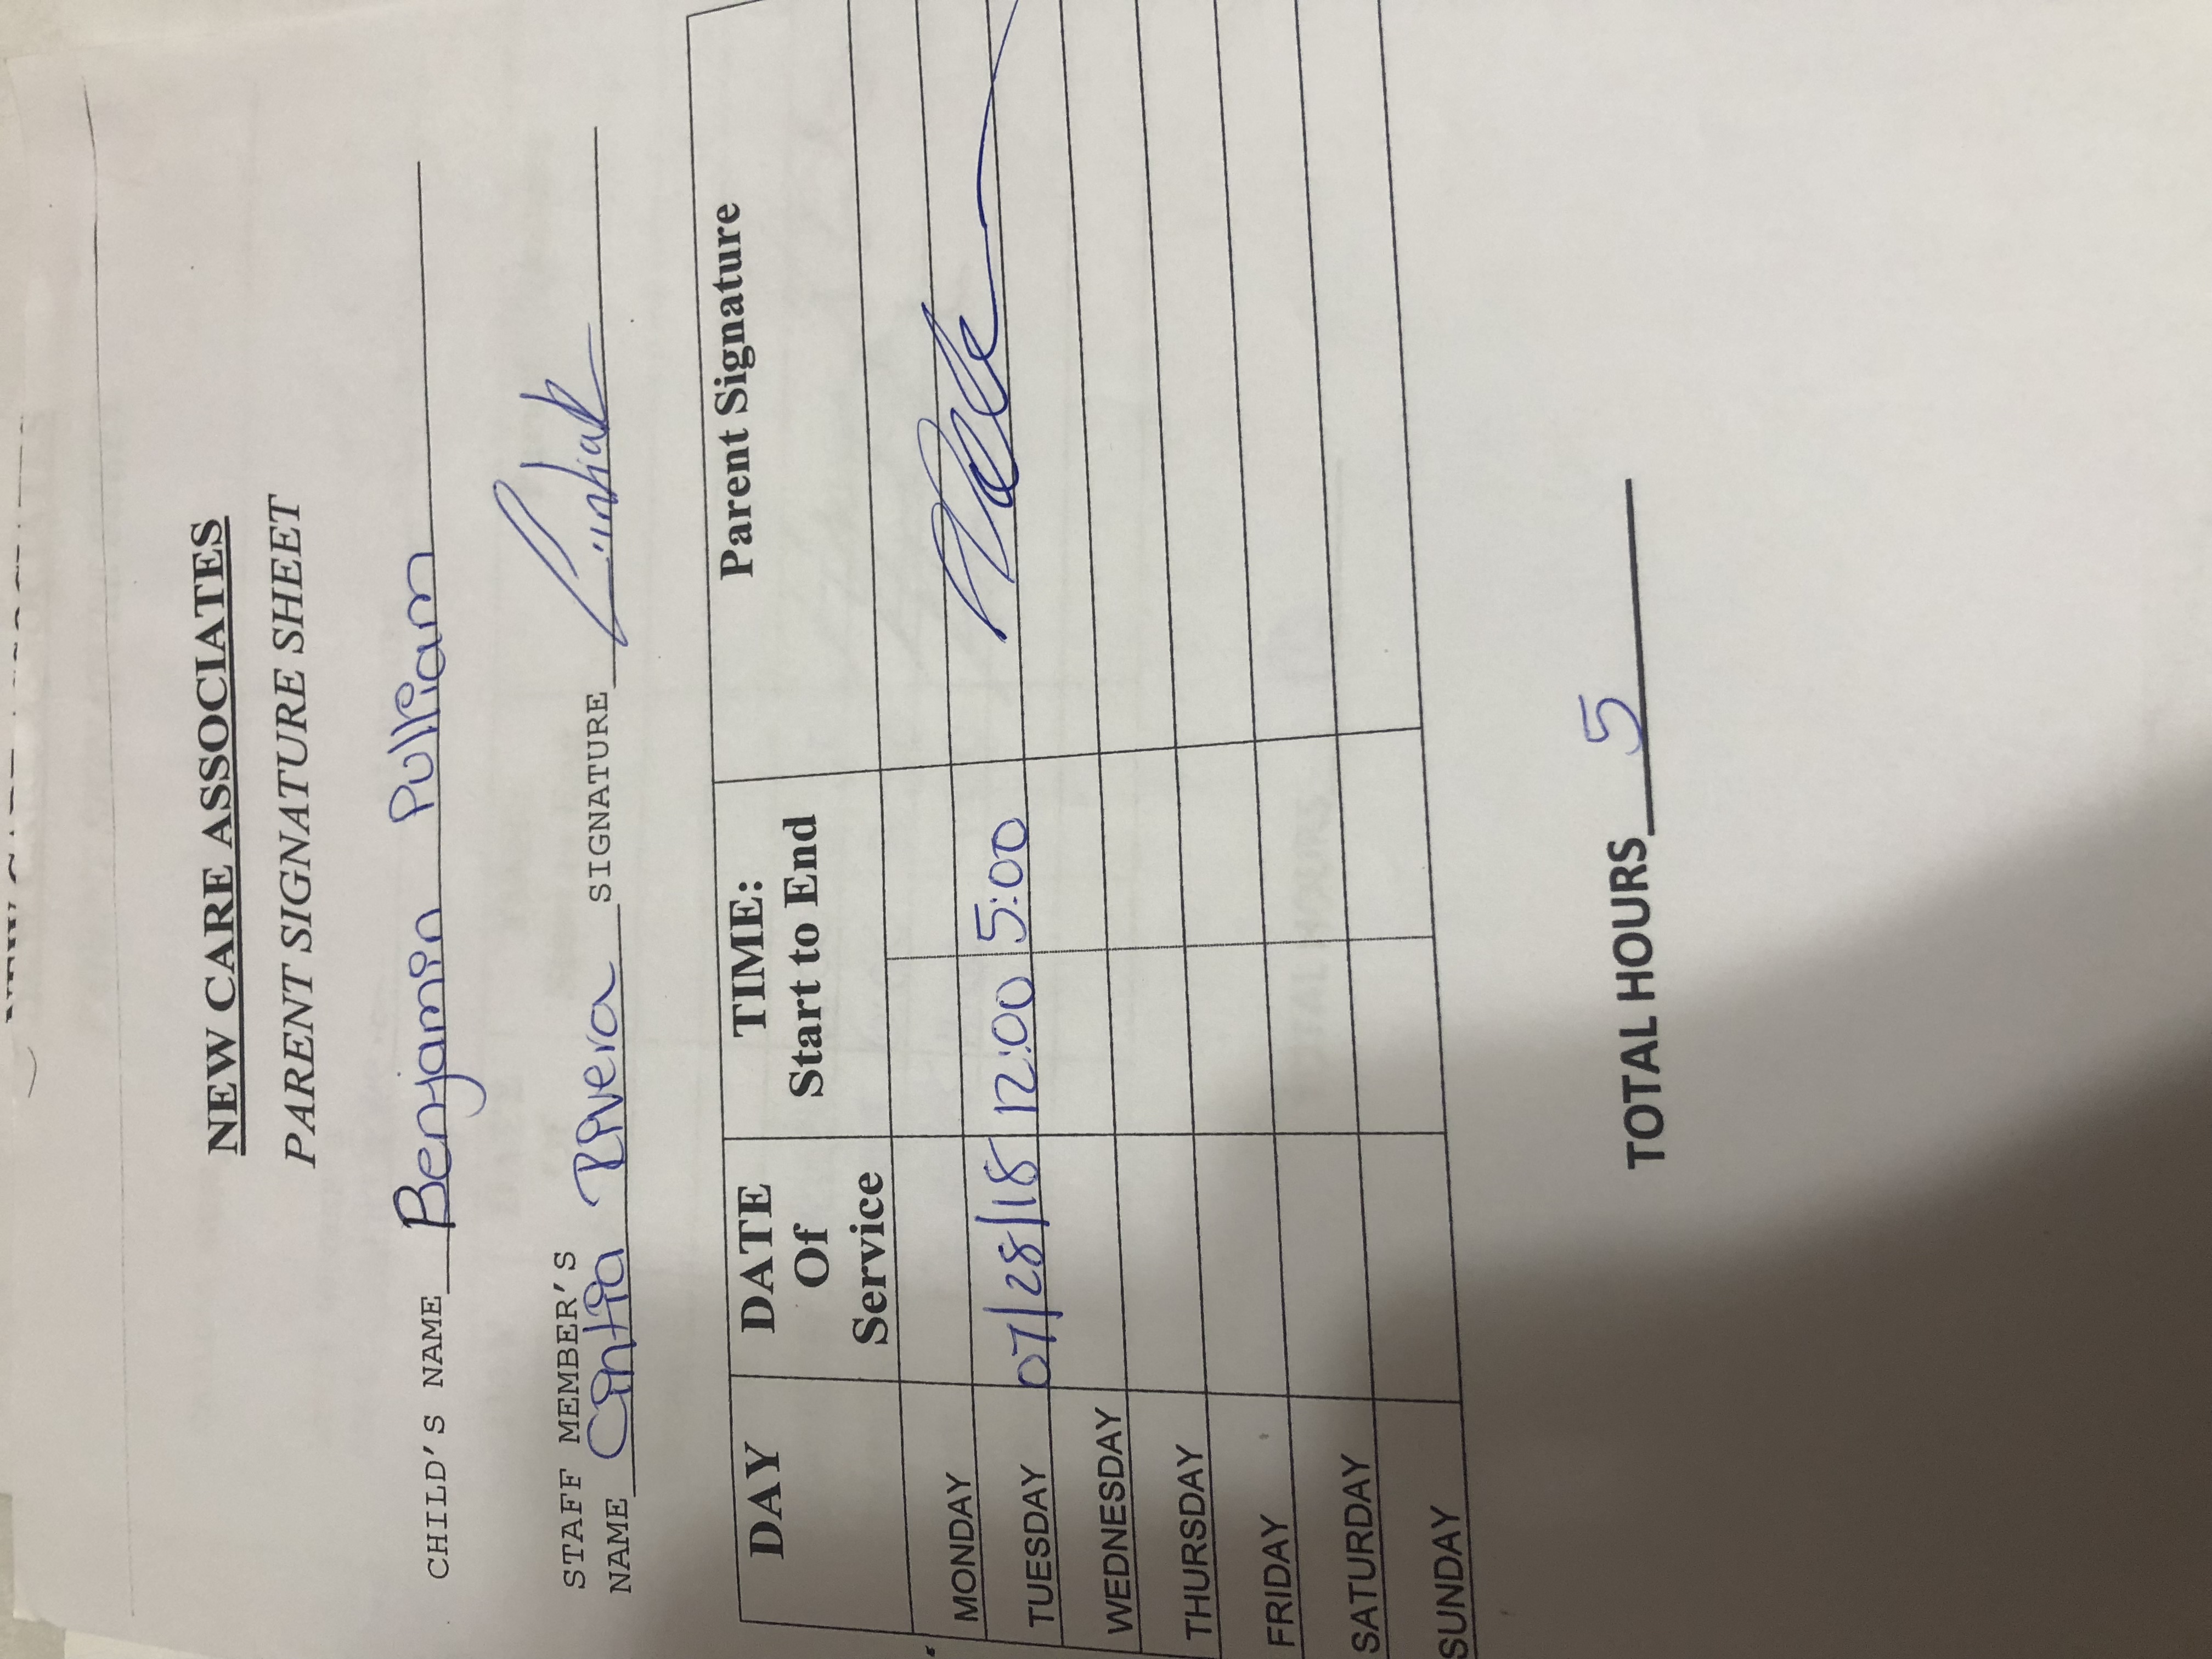 NEW CARE ASSOCIATES
PARENT SIGNATURE SHEET
CHILD'S NAME Benjamin Pulliam
STAFF MEMBER'S
NAME Cintia Rivera SIGNATURE
DAY DATE Of Service TIME: Start to End Parent Signature
MONDAY
TUESDAY 07/28/18 12:00 5:00
WEDNESDAY
THURSDAY
FRIDAY
SATURDAY
SUNDAY
TOTAL HOURS 5